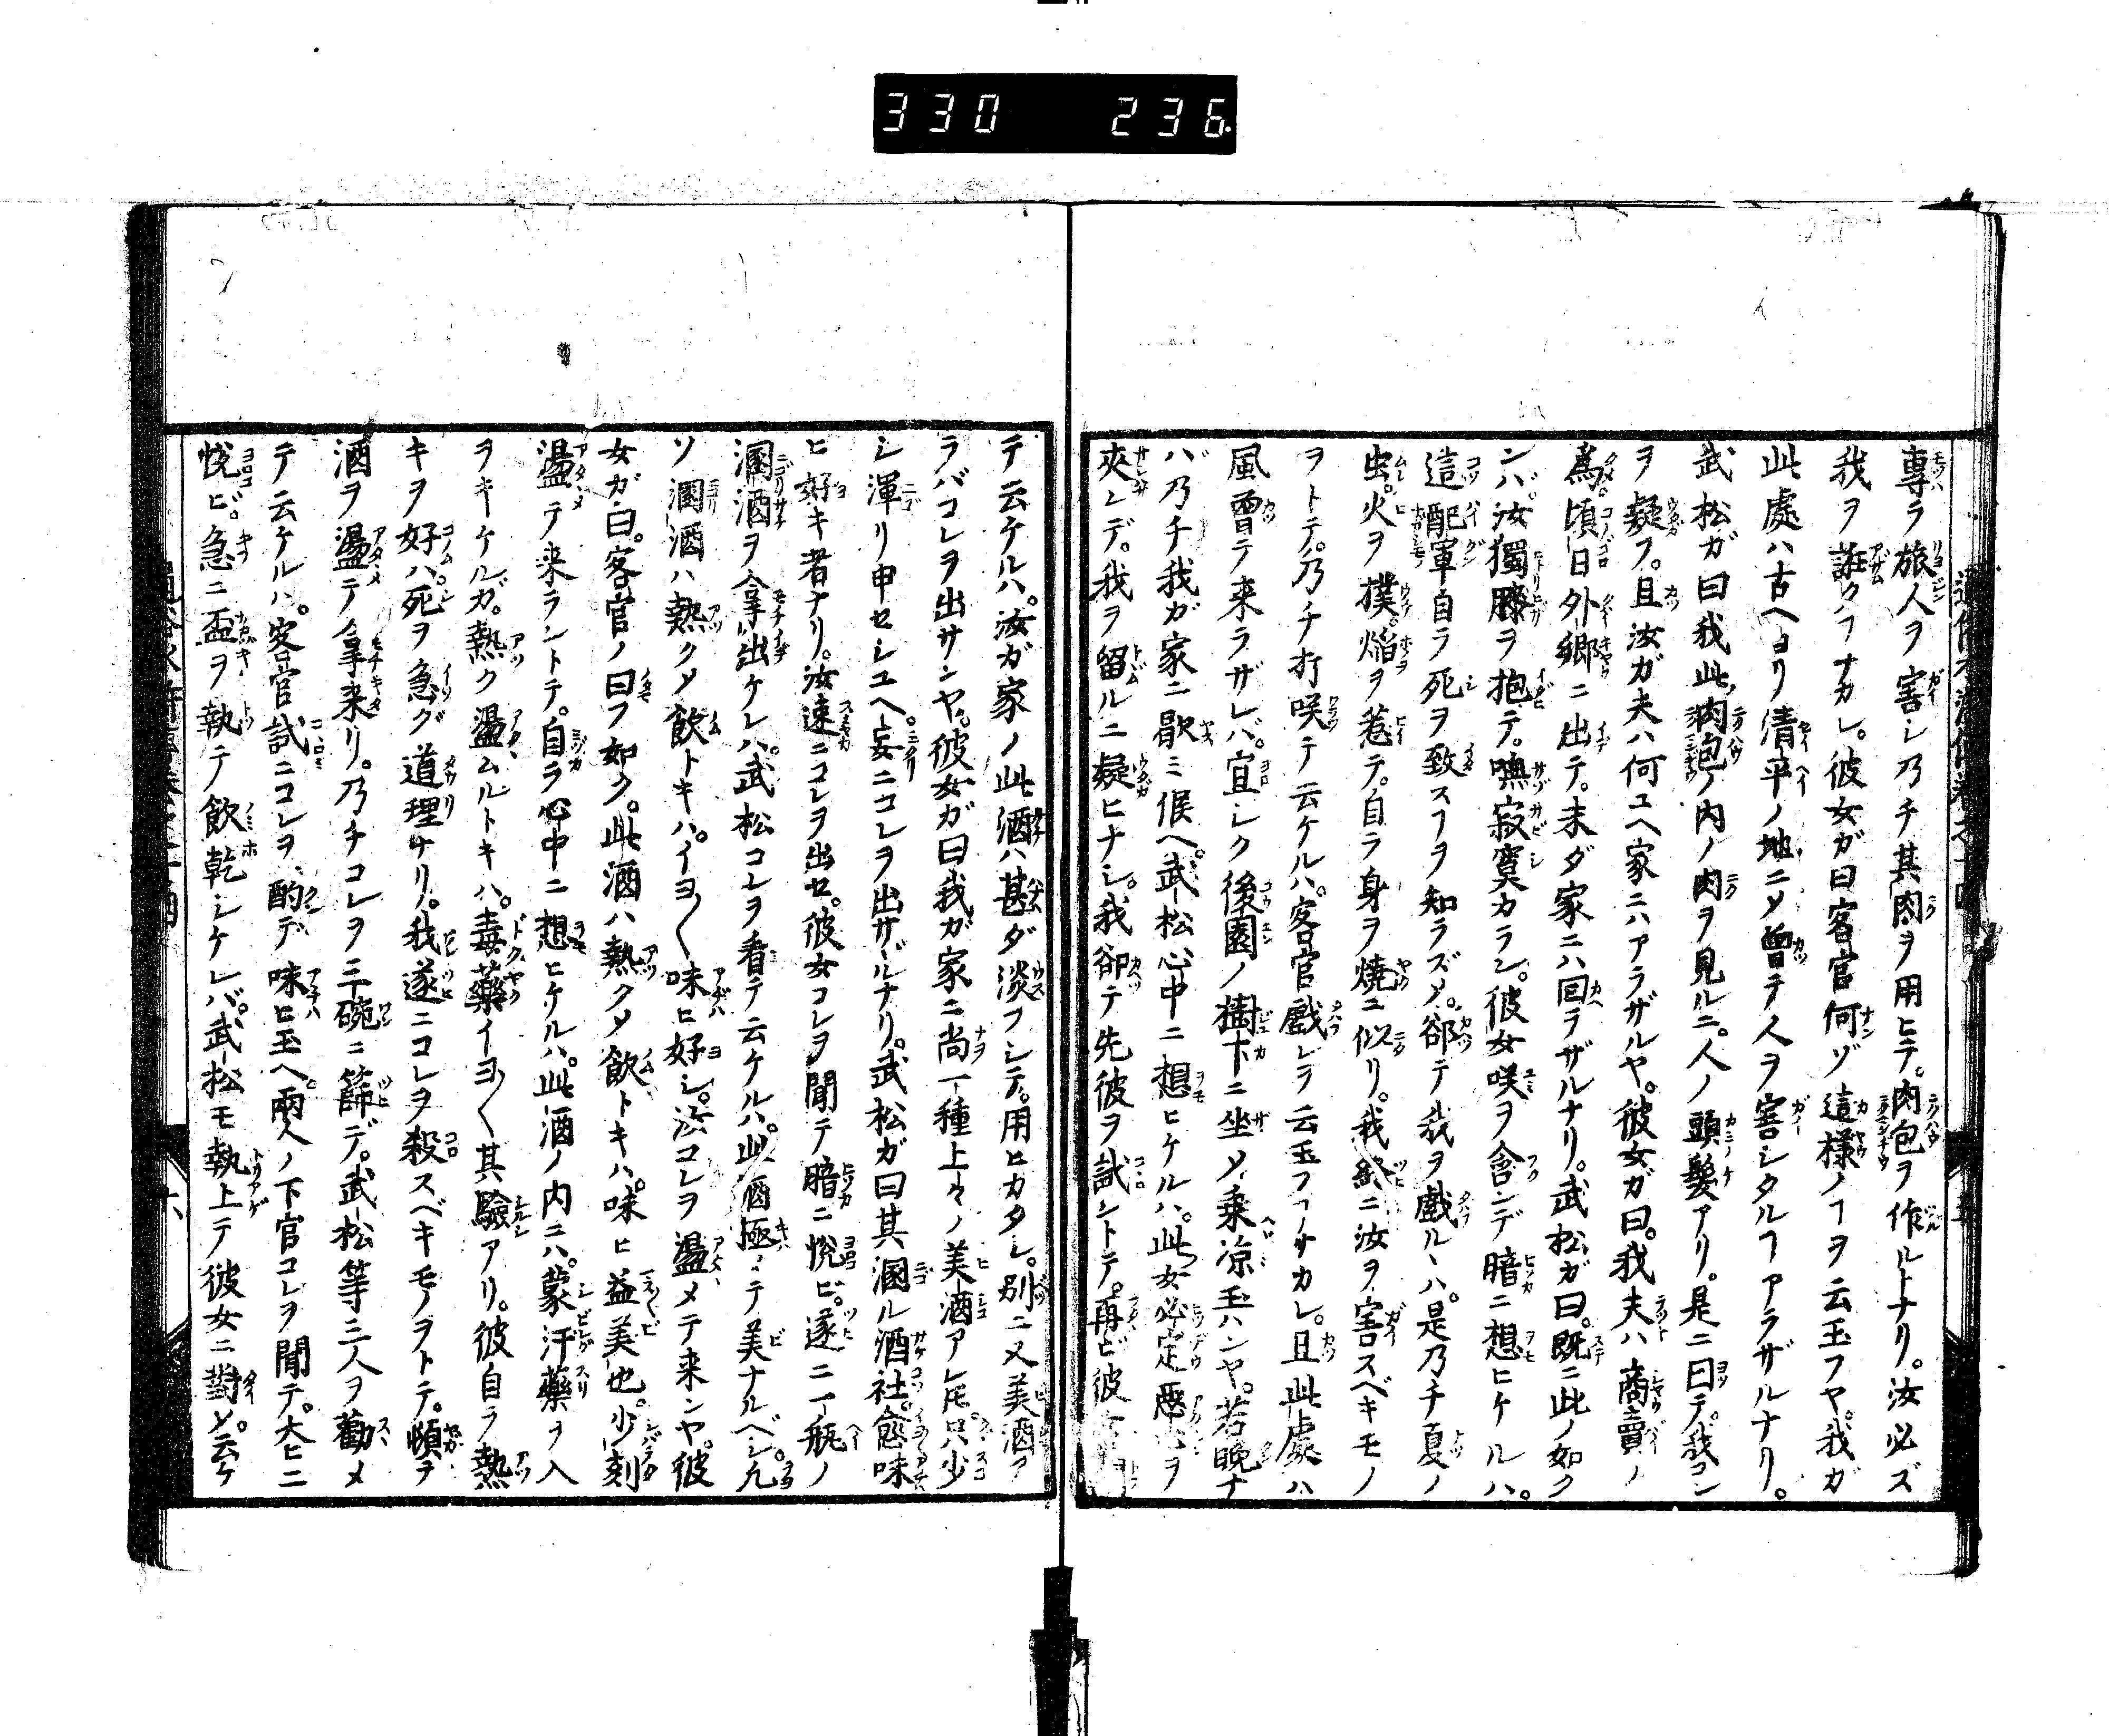 330 236
專ラ旅人ヲ害シ乃チ其肉ヲ用ヒテ。肉包ヲ作ルトナリ。汝必ズ
我ヲ誑クヿナカレ。彼女ガ曰客官何ゾ這様ノヿヲ云玉フヤ。我ガ
此處ハ古ヘヨリ清平ノ地ニメ曾テ人ヲ害シタルヿアラザルナリ。
武松ガ曰我此肉包ノ内ノ肉ヲ見ルニ。人ノ頭髪アリ。是ニ曰テ。我コレ
ヲ疑フ。且汝ガ夫ハ何ユヘ家ニハアラザルヤ。彼女ガ曰。我夫ハ商賣ノ
為。頃日外郷ニ出テ。未ダ家ニハ回ラザルナリ。武松ガ曰。既ニ此ノ如ク
ンバ。汝獨膝ヲ抱テ。嘸寂寞カラン。彼女咲ヲ含ンデ暗ニ想ヒケルハ。
這配軍自ラ死ヲ致スヿヲ知ラズメ。卻テ我ヲ戲ルヽハ。是乃チ夏ノ
虫。火ヲ撲。焔ヲ惹テ。自ラ身ヲ焼ニ似リ。我終ニ汝ヲ害スベキモノ
ヲトテ。乃チ打咲テ云ケルハ。客官戲レヲ云玉フヿナカレ。且此處ハ
風曾テ来ラザレバ。宜シク後園ノ樹下ニ坐メ乗凉玉ハンヤ。若晩ナ
バ乃チ我ガ家ニ歇ミ候ヘ。武松心中ニ想ヒケルハ。此女必定惡心ヲ
夾ンデ。我ヲ留ルニ疑ヒナシ。我卻テ先彼ヲ試ントテ。再ビ彼
テ云ケルハ。汝ガ家ノ此酒ハ甚ダ淡フシテ。用ヒカタシ。別ニ又美酒ア
ラバコレヲ出サンヤ。彼女ガ曰我ガ家ニ尚一種上々ノ美酒アレ𪜈只少
シ渾リ申セシユヘ。妄ニコレヲ出サヾルナリ。武松ガ曰其溷ル酒社。愈味
ヒ好キ者ナリ。汝速ニコレヲ出セ。彼女コレヲ聞テ暗ニ悅ビ。遂ニ一瓶ノ
溷酒ヲ拿出ケレハ。武松コレヲ看テ云ケルハ。此酒極メテ美ナルベシ。凡
ソ溷酒ハ熱クメ飲トキハ。イヨ〱味ヒ好シ。汝コレヲ盪メテ来ンヤ。彼
女ガ曰。客官ノ曰フ如ク。此酒ハ熱クメ飲トキハ。味ヒ益美也。少刻
盪テ来ラントテ。自ラ心中ニ想ヒケルハ。此酒ノ内ニハ。蒙汗藥ヲ入
ヲキケルガ。熱ク盪ムルトキハ。毒藥イヨ〱其驗アリ。彼自ラ熱
キヲ好ハ。死ヲ急グ道理ナリ。我遂ニコレヲ殺スベキモノヲトテ。頓テ
酒ヲ盪テ拿来リ。乃チコレヲ三碗ニ篩デ。武松等三人ヲ勸メ
テ云ケルハ。客官試ニコレヲ酌デ味ヒ玉ヘ。兩人ノ下官コレヲ聞テ。大ヒニ
悅ビ。急ニ盃ヲ執テ飲乾シケレバ。武松モ執上テ彼女ニ對メ。云ケ